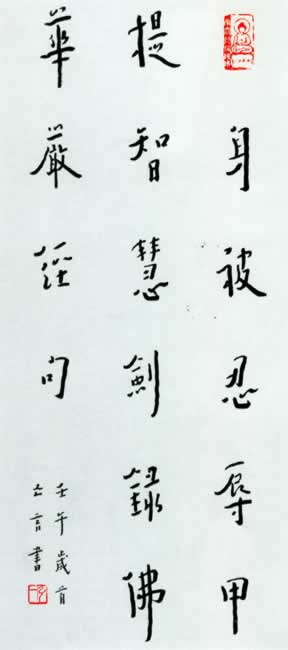 身被忍辱甲
提智慧劍錄佛
華嚴經句
壬午歲首
言書